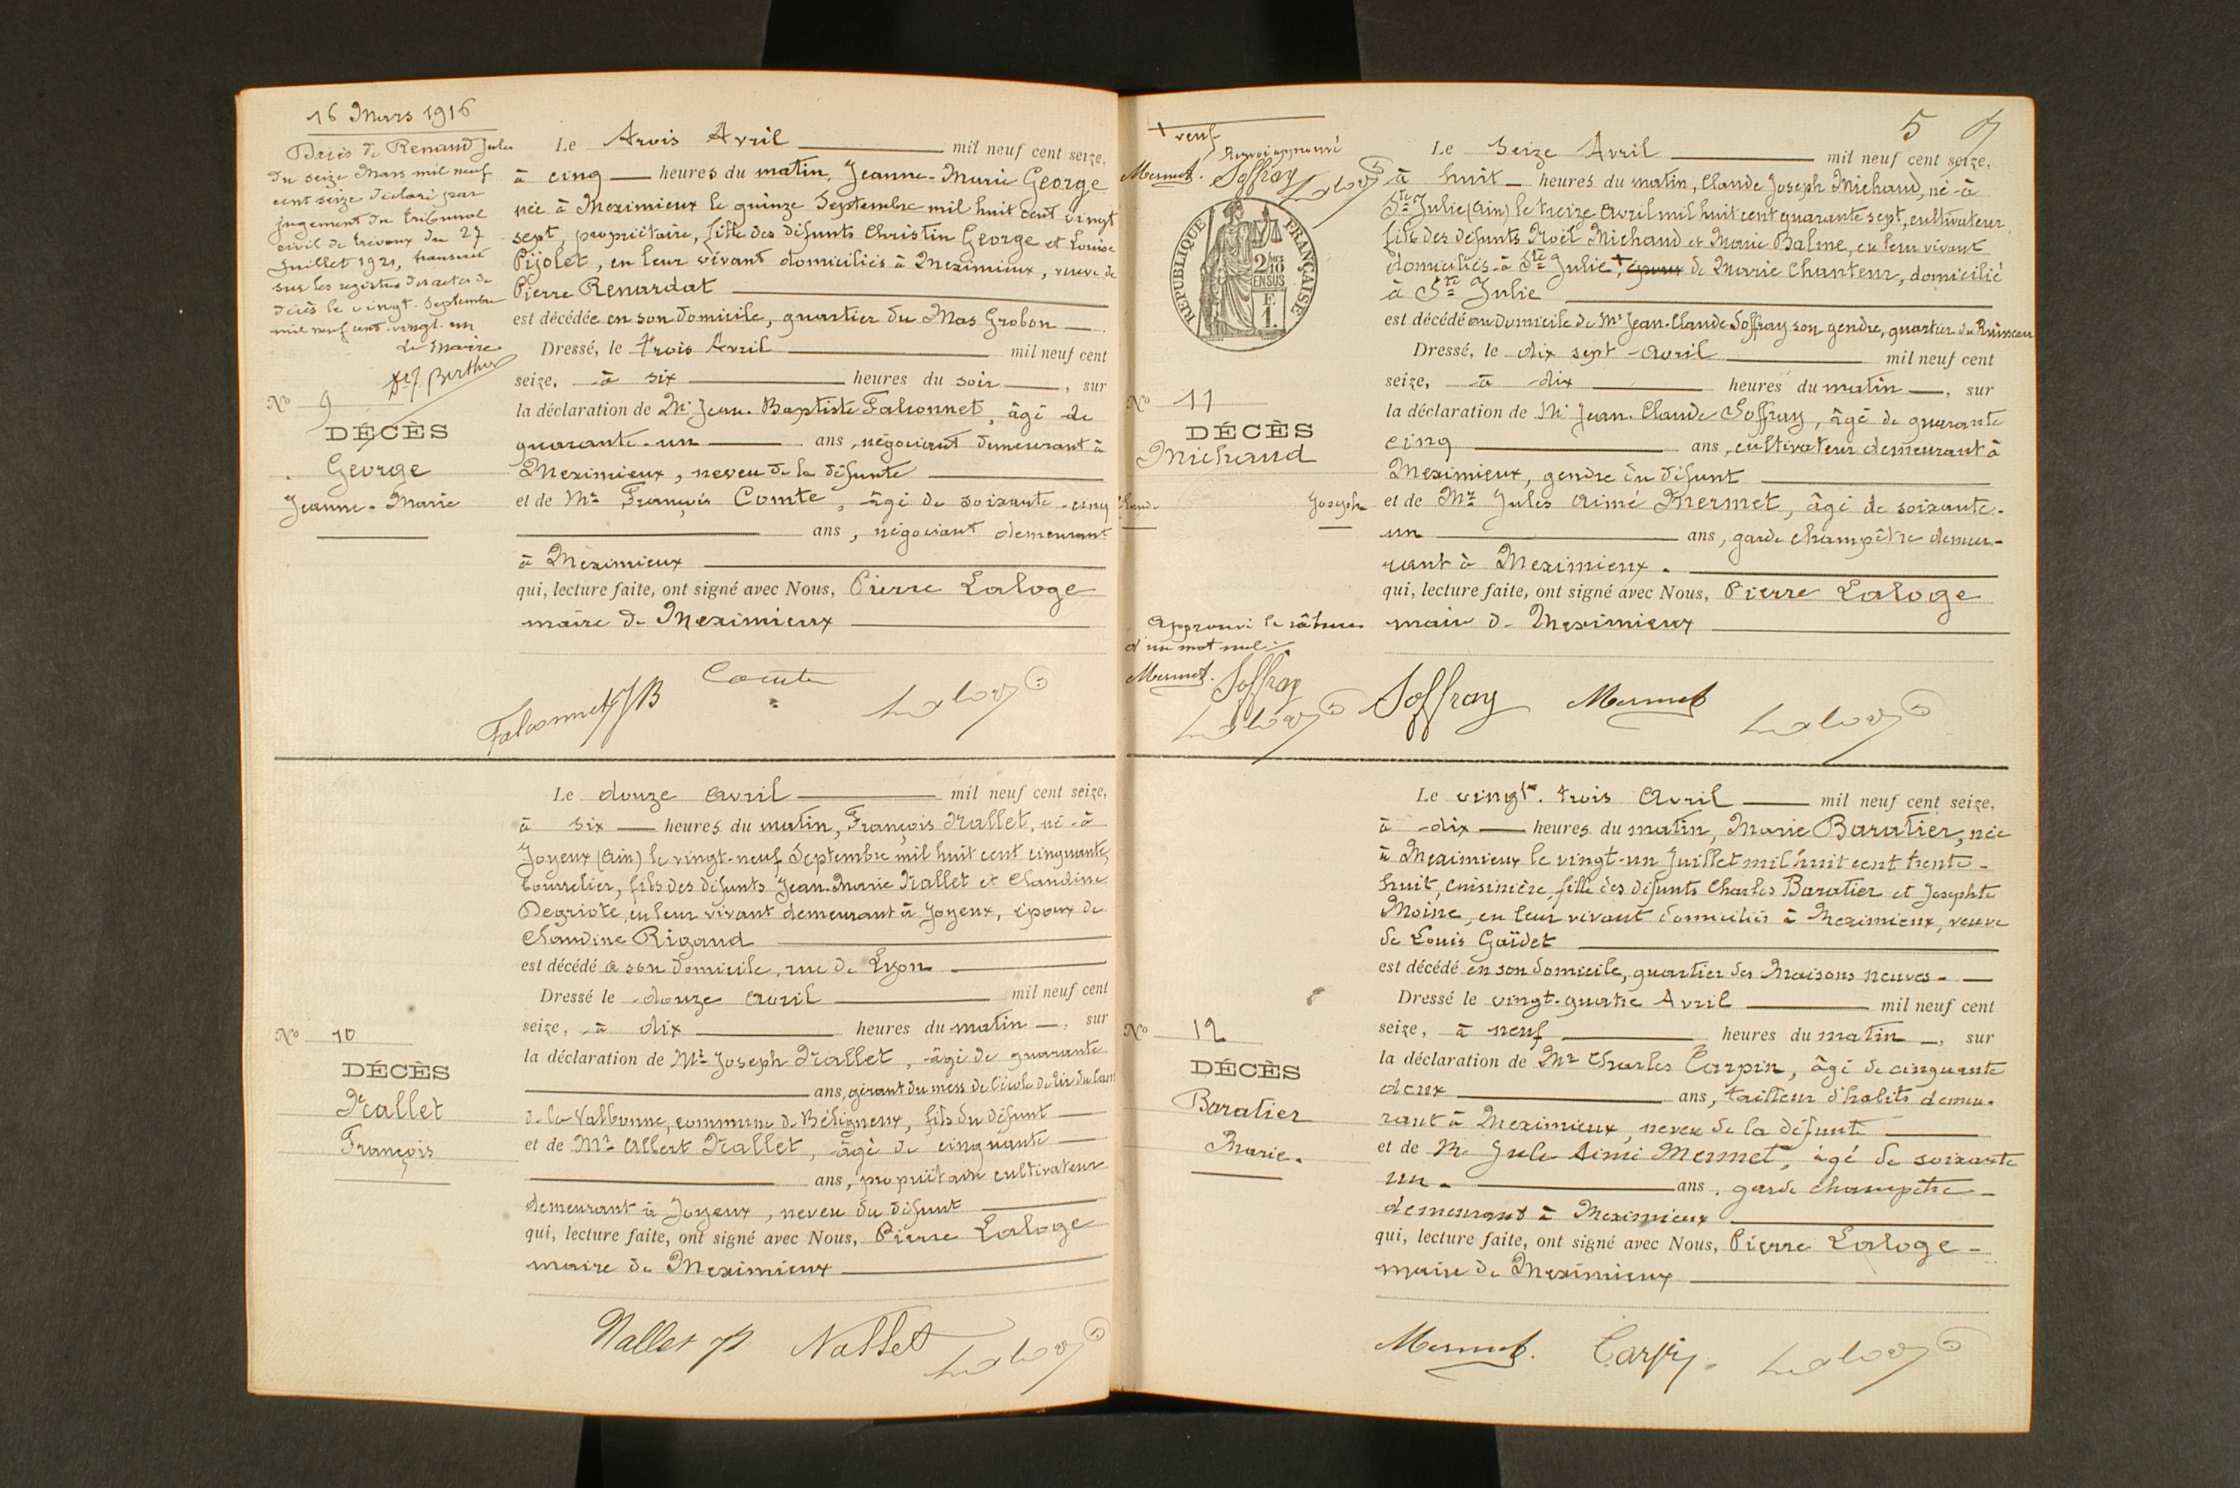 16 Mars 1916
Décès de Renaud Jules
du seize Mars mil neuf
cent seize déclaré par
jugement du tribunal
civil de Trévoux du 27
Juillet 1921, transcrit
sur les registres des actes de
décès le vingt Septembre
mil neuf cent vingt un
Le Maire
Berthet
Nº 9
DÉCÈS
George
Jeanne-Marie
Le trois Avril mil neuf cent seize,
à cinq heures du matin, Jeanne-Marie George
née à Meximieux le quinze Septembre mil huit cent vingt
sept, propriétaire, fille des défunts Christin George et Louise
Pijolet, en leur vivant domiciliés à Meximieux, veuve de
Pierre Renardat
est décédée en son domicile, quartier du Mas Grobon
Dressé, le trois Avril mil neuf cent
seize, à six heures du soir, sur
la déclaration de Mr Jean-Baptiste Falconnet, âgé de
quarante-un ans, négociant demeurant à
Meximieux, neveu de la défunte
et de Mr François Comte, âgé de soixante-cinq
ans, négociant demeurant
à Meximieux
qui, lecture faite, ont signé avec Nous, Pierre Laloge
maire de Meximieux
Falconnet JB Comte Laloge
Nº 10
DÉCÈS
Nallet
François
Le douze Avril mil neuf cent seize,
à six heures du matin, François Nallet, né à
Joyeux (Ain) le vingt-neuf Septembre mil huit cent cinquante,
bourrelier, fils des défunts Jean-Marie Nallet et Claudine
Degriote, en leur vivant demeurant à Joyeux, époux de
Claudine Rigaud
est décédé à son domicile, rue de Lyon
Dressé le douze Avril mil neuf cent
seize, à dix heures du matin, sur
la déclaration de Mr Joseph Nallet, âgé de quarante
ans, gérant du mess de l'école de tir du Camp
de la Valbonne, commune de Béligneux, fils du défunt
et de Mr Albert Nallet, âgé de cinquante
ans, propriétaire cultivateur
demeurant à Joyeux, neveu du défunt
qui, lecture faite, ont signé avec Nous, Pierre Laloge
maire de Meximieux
Nallet Nallet Laloge
5
+ veuf
Renvoi approuvé
Mermet. Soffray Laloge
RÉPUBLIQUE FRANÇAISE
2/10 EN SUS
F. 1.
Nº 11
DÉCÈS
Michaud
Claude Joseph
Approuvé la rature
d'un mot nul
Mermet. Soffray
Laloge
Le Seize Avril mil neuf cent seize,
à huit heures du matin, Claude Joseph Michaud, né à
Ste Julie (Ain) le treize Avril mil huit cent quarante sept, cultivateur
fils des défunts Noël Michaud et Marie Balme, en leur vivant
domiciliés à Ste Julie, + époux de Marie Chanteur, domicilié
à Ste Julie
est décédé au domicile de Mr Jean-Claude Soffray son gendre, quartier du Ruisseau
Dressé, le dix sept Avril mil neuf cent
seize, à dix heures du matin, sur
la déclaration de Mr Jean-Claude Soffray, âgé de quarante
cinq ans, cultivateur demeurant à
Meximieux, gendre du défunt
et de Mr Jules Aimé Mermet, âgé de soixante-
un ans, garde champêtre demeu-
rant à Meximieux.
qui, lecture faite, ont signé avec Nous, Pierre Laloge
maire de Meximieux
Soffray Mermet Laloge
Nº 12
DÉCÈS
Baratier
Marie.
Le vingt-trois Avril mil neuf cent seize,
à dix heures du matin, Marie Baratier, née
à Meximieux le vingt-un Juillet mil huit cent trente-
huit, cuisinière, fille des défunts Charles Baratier et Josephte
Moine, en leur vivant domiciliés à Meximieux, veuve
de Louis Gaïdet
est décédé en son domicile, quartier des Maisons neuves
Dressé le vingt-quatre Avril mil neuf cent
seize, à neuf heures du matin, sur
la déclaration de Mr Charles Carpin, âgé de cinquante
deux ans, tailleur d'habits demeu-
rant à Meximieux, neveu de la défunte
et de Mr Jules Aimé Mermet, âgé de soixante
un ans, garde champêtre
demeurant à Meximieux
qui, lecture faite, ont signé avec Nous, Pierre Laloge
maire de Meximieux
Mermet. Carpin Laloge